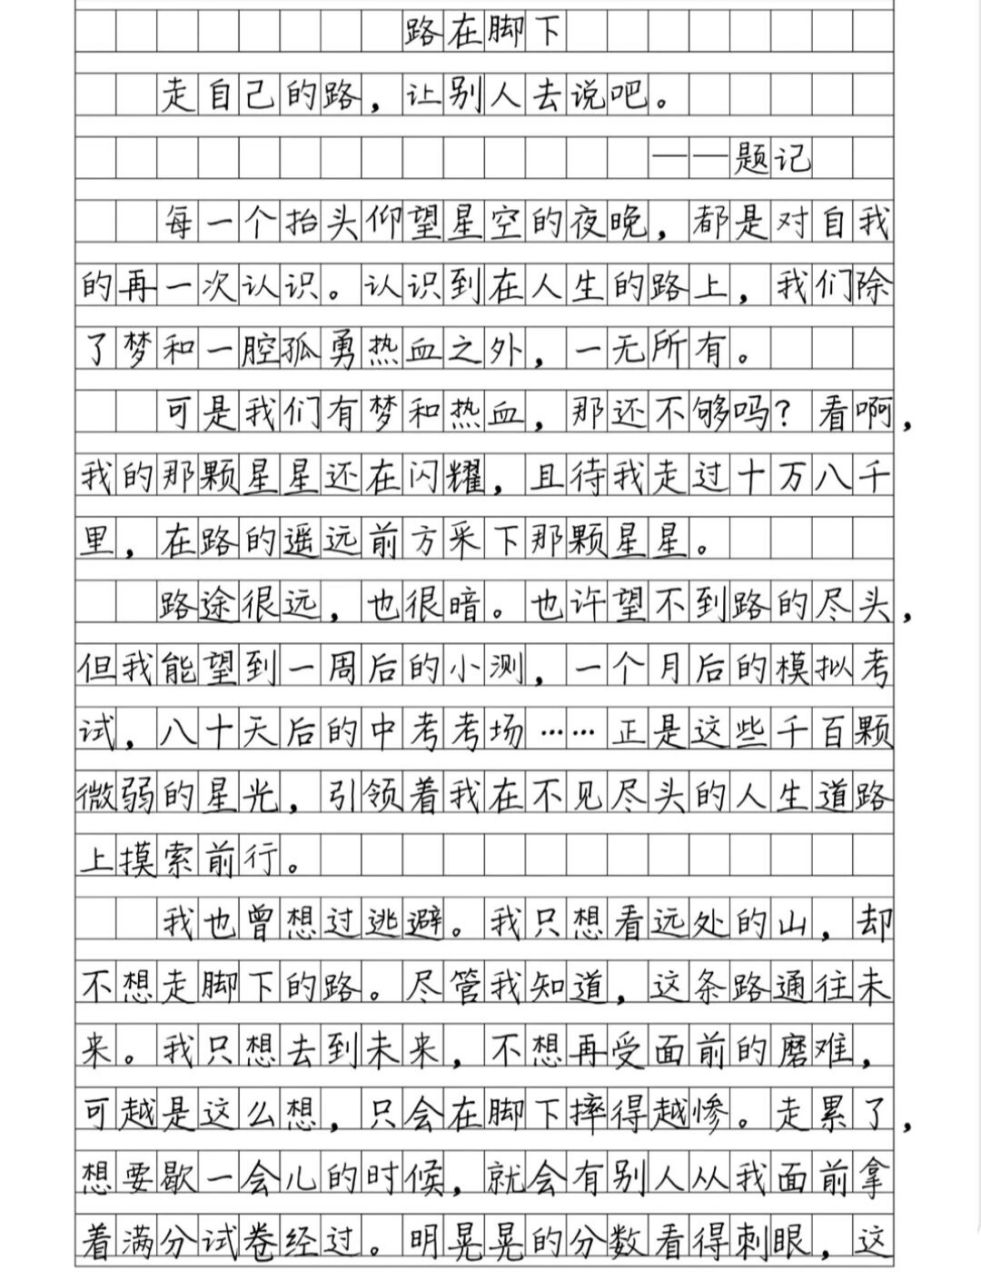 路在脚下
走自己的路，让别人去说吧。
——题记
每一个抬头仰望星空的夜晚，都是对自我
的再一次认识。认识到在人生的路上，我们除
了梦和一腔孤勇热血之外，一无所有。
可是我们有梦和热血，那还不够吗？看啊，
我的那颗星星还在闪耀，且待我走过十万八千
里，在路的遥远前方采下那颗星星。
路途很远，也很暗。也许望不到路的尽头，
但我能望到一周后的小测，一个月后的模拟考
试，八十天后的中考考场……正是这些千百颗
微弱的星光，引领着我在不见尽头的人生道路
上摸索前行。
我也曾想过逃避。我只想看远处的山，却
不想走脚下的路。尽管我知道，这条路通往未
来。我只想去到未来，不想再受面前的磨难，
可越是这么想，只会在脚下摔得越惨。走累了，
想要歇一会儿的时候，就会有别人从我面前拿
着满分试卷经过。明晃晃的分数看得刺眼，这